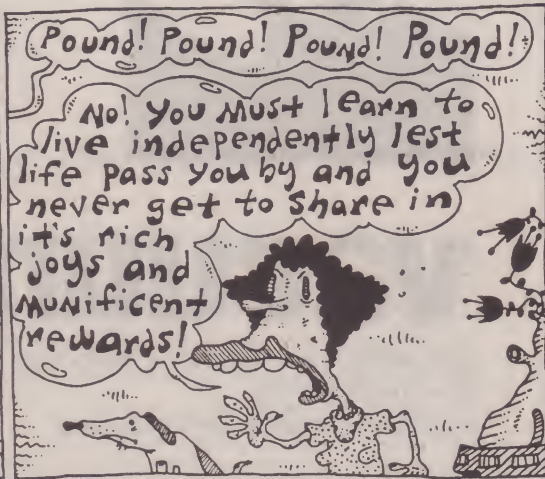 Pound! Pound! Pound! Pound!
No! You Must learn to
live independently lest
life pass you by and you
never get to share in
it's rich
joys and
Munificent
rewards!